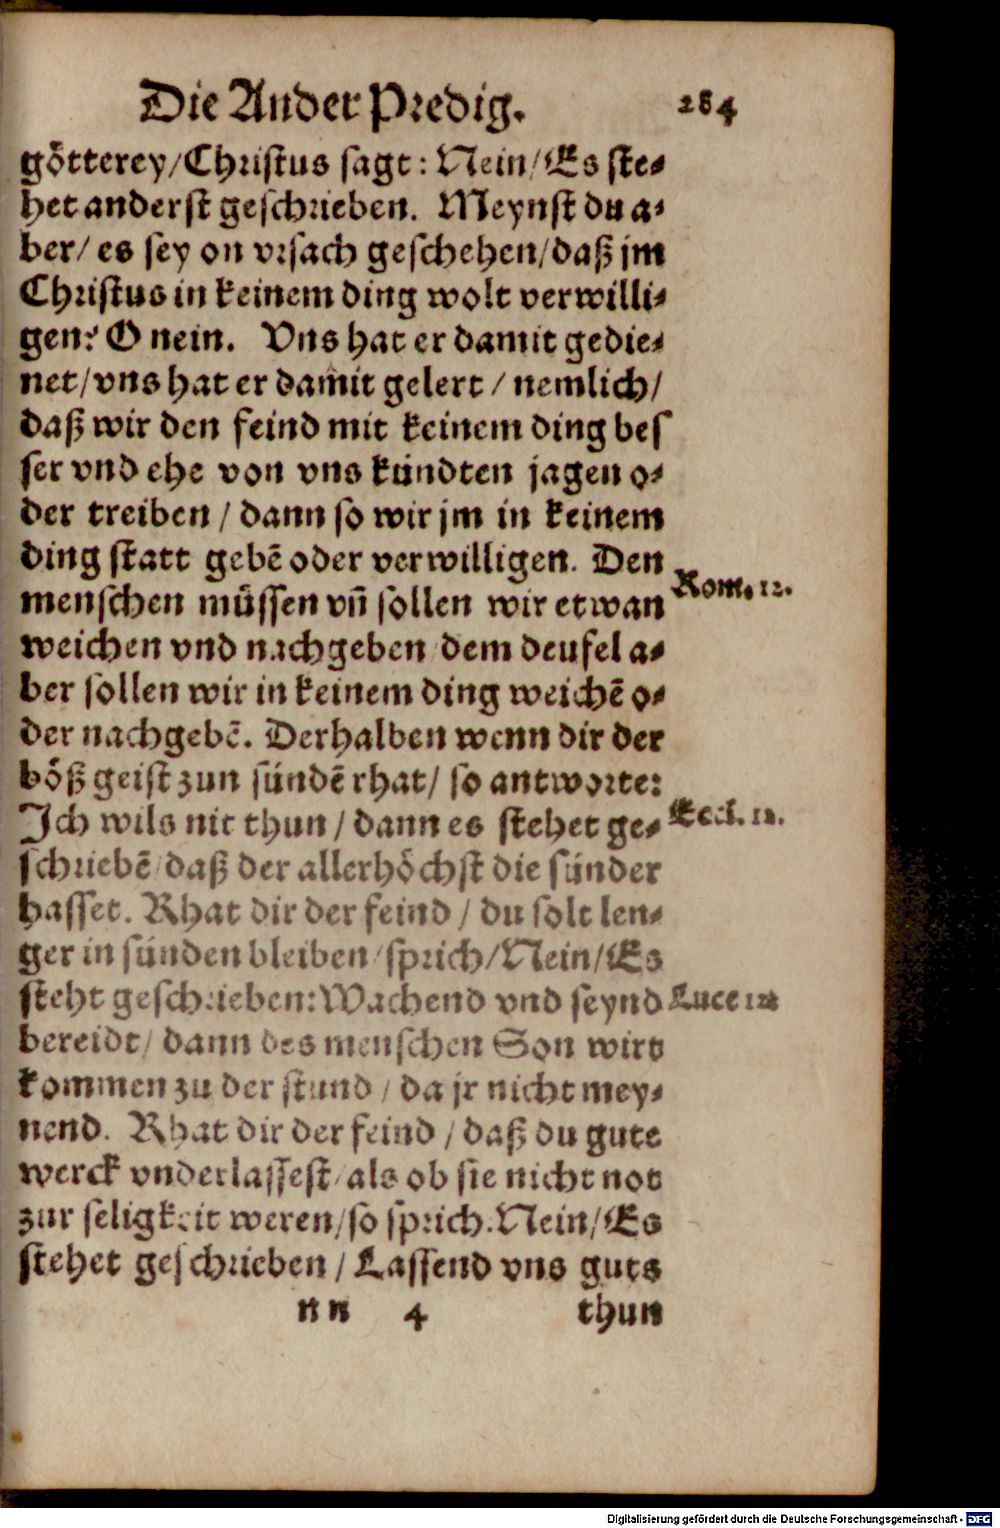 Die Ander Predig. 284
götterey/Christus sagt: Nein/Es ste-
het anderst geschrieben. Meynst du a-
ber/ es sey on vrsach geschehen/daß jm
Christus in keinem ding wolt verwilli-
gen? O nein. Vns hat er damit gedie-
net/vns hat er damit gelert / nemlich/
daß wir den feind mit keinem ding bes
ser vnd ehe von vns kündten jagen o-
der treiben / dann so wir jm in keinem
ding statt gebē oder verwilligen. Den
Rom. 12.
menschen müssen vñ sollen wir etwan
weichen vnd nachgeben dem deufel a-
ber sollen wir in keinem ding weichē o-
der nachgebē. Derhalben wenn dir der
böß geist zun sündē rhat/ so antworte:
Ich wils nit thun / dann es stehet ge-
Eccl. 12.
schriebē/daß der allerhöchst die sünder
hasset. Rhat dir der feind / du solt len-
ger in sünden bleiben/sprich/Nein/Es
steht geschrieben: Wachend vnd seynd
Luce 12
bereidt/ dann des menschen Son wird
kommen zu der stund / da jr nicht mey-
nend. Rhat dir der feind / daß du gute
werck vnderlassest/als ob sie nicht not
zur seligkeit weren/so sprich. Nein/Es
stehet geschrieben / Lassend vns guts
nn 4 thun
Digitalisierung gefördert durch die Deutsche Forschungsgemeinschaft - DFG